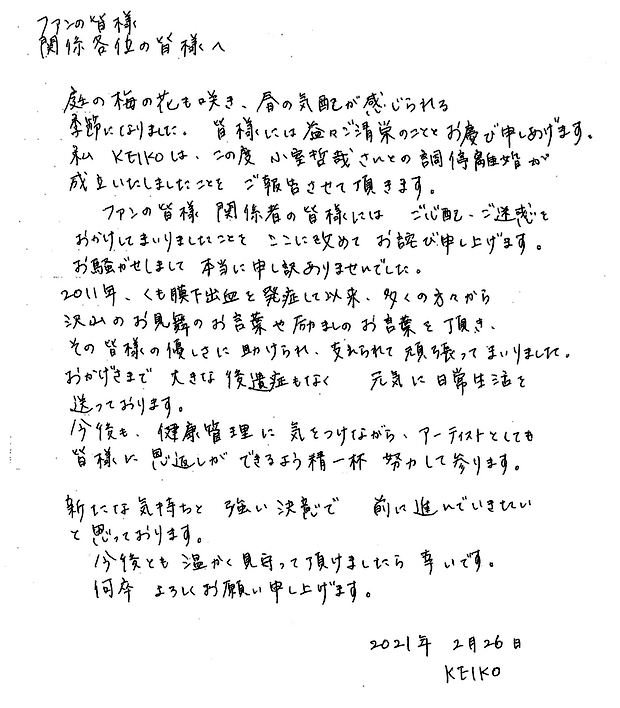 ファンの皆様
関係各位の皆様へ
庭の梅の花も咲き、春の気配が感じられる
季節になりました。 皆様には益々ご清栄のこととお慶び申しあげます。
私 KEIKOは、この度 小室哲哉さんとの調停離婚が
成立いたしましたことを ご報告させて頂きます。
ファンの皆様 関係者の皆様には ご心配、ご迷惑を
おかけしてまいりましたことを ここに改めて お詫び申し上げます。
お騒がせしまして 本当に申し訳ありませんでした。
2011年、くも膜下出血を発症して以来、多くの方々から
沢山のお見舞のお言葉や励ましのお言葉を頂き、
その皆様の優しさに助けられ、支えられて頑張ってまいりました。
おかげさまで 大きな後遺症もなく 元気に日常生活を
送っております。
今後も、健康管理に気をつけながら、アーティストとしても
皆様に恩返しができるよう精一杯 努力して参ります。
新たな気持ちと 強い決意で 前に進んでいきたい
と思っております。
今後とも温かく見守って頂けましたら 幸いです。
何卒 よろしくお願い申し上げます。
2021年 2月26日
KEIKO